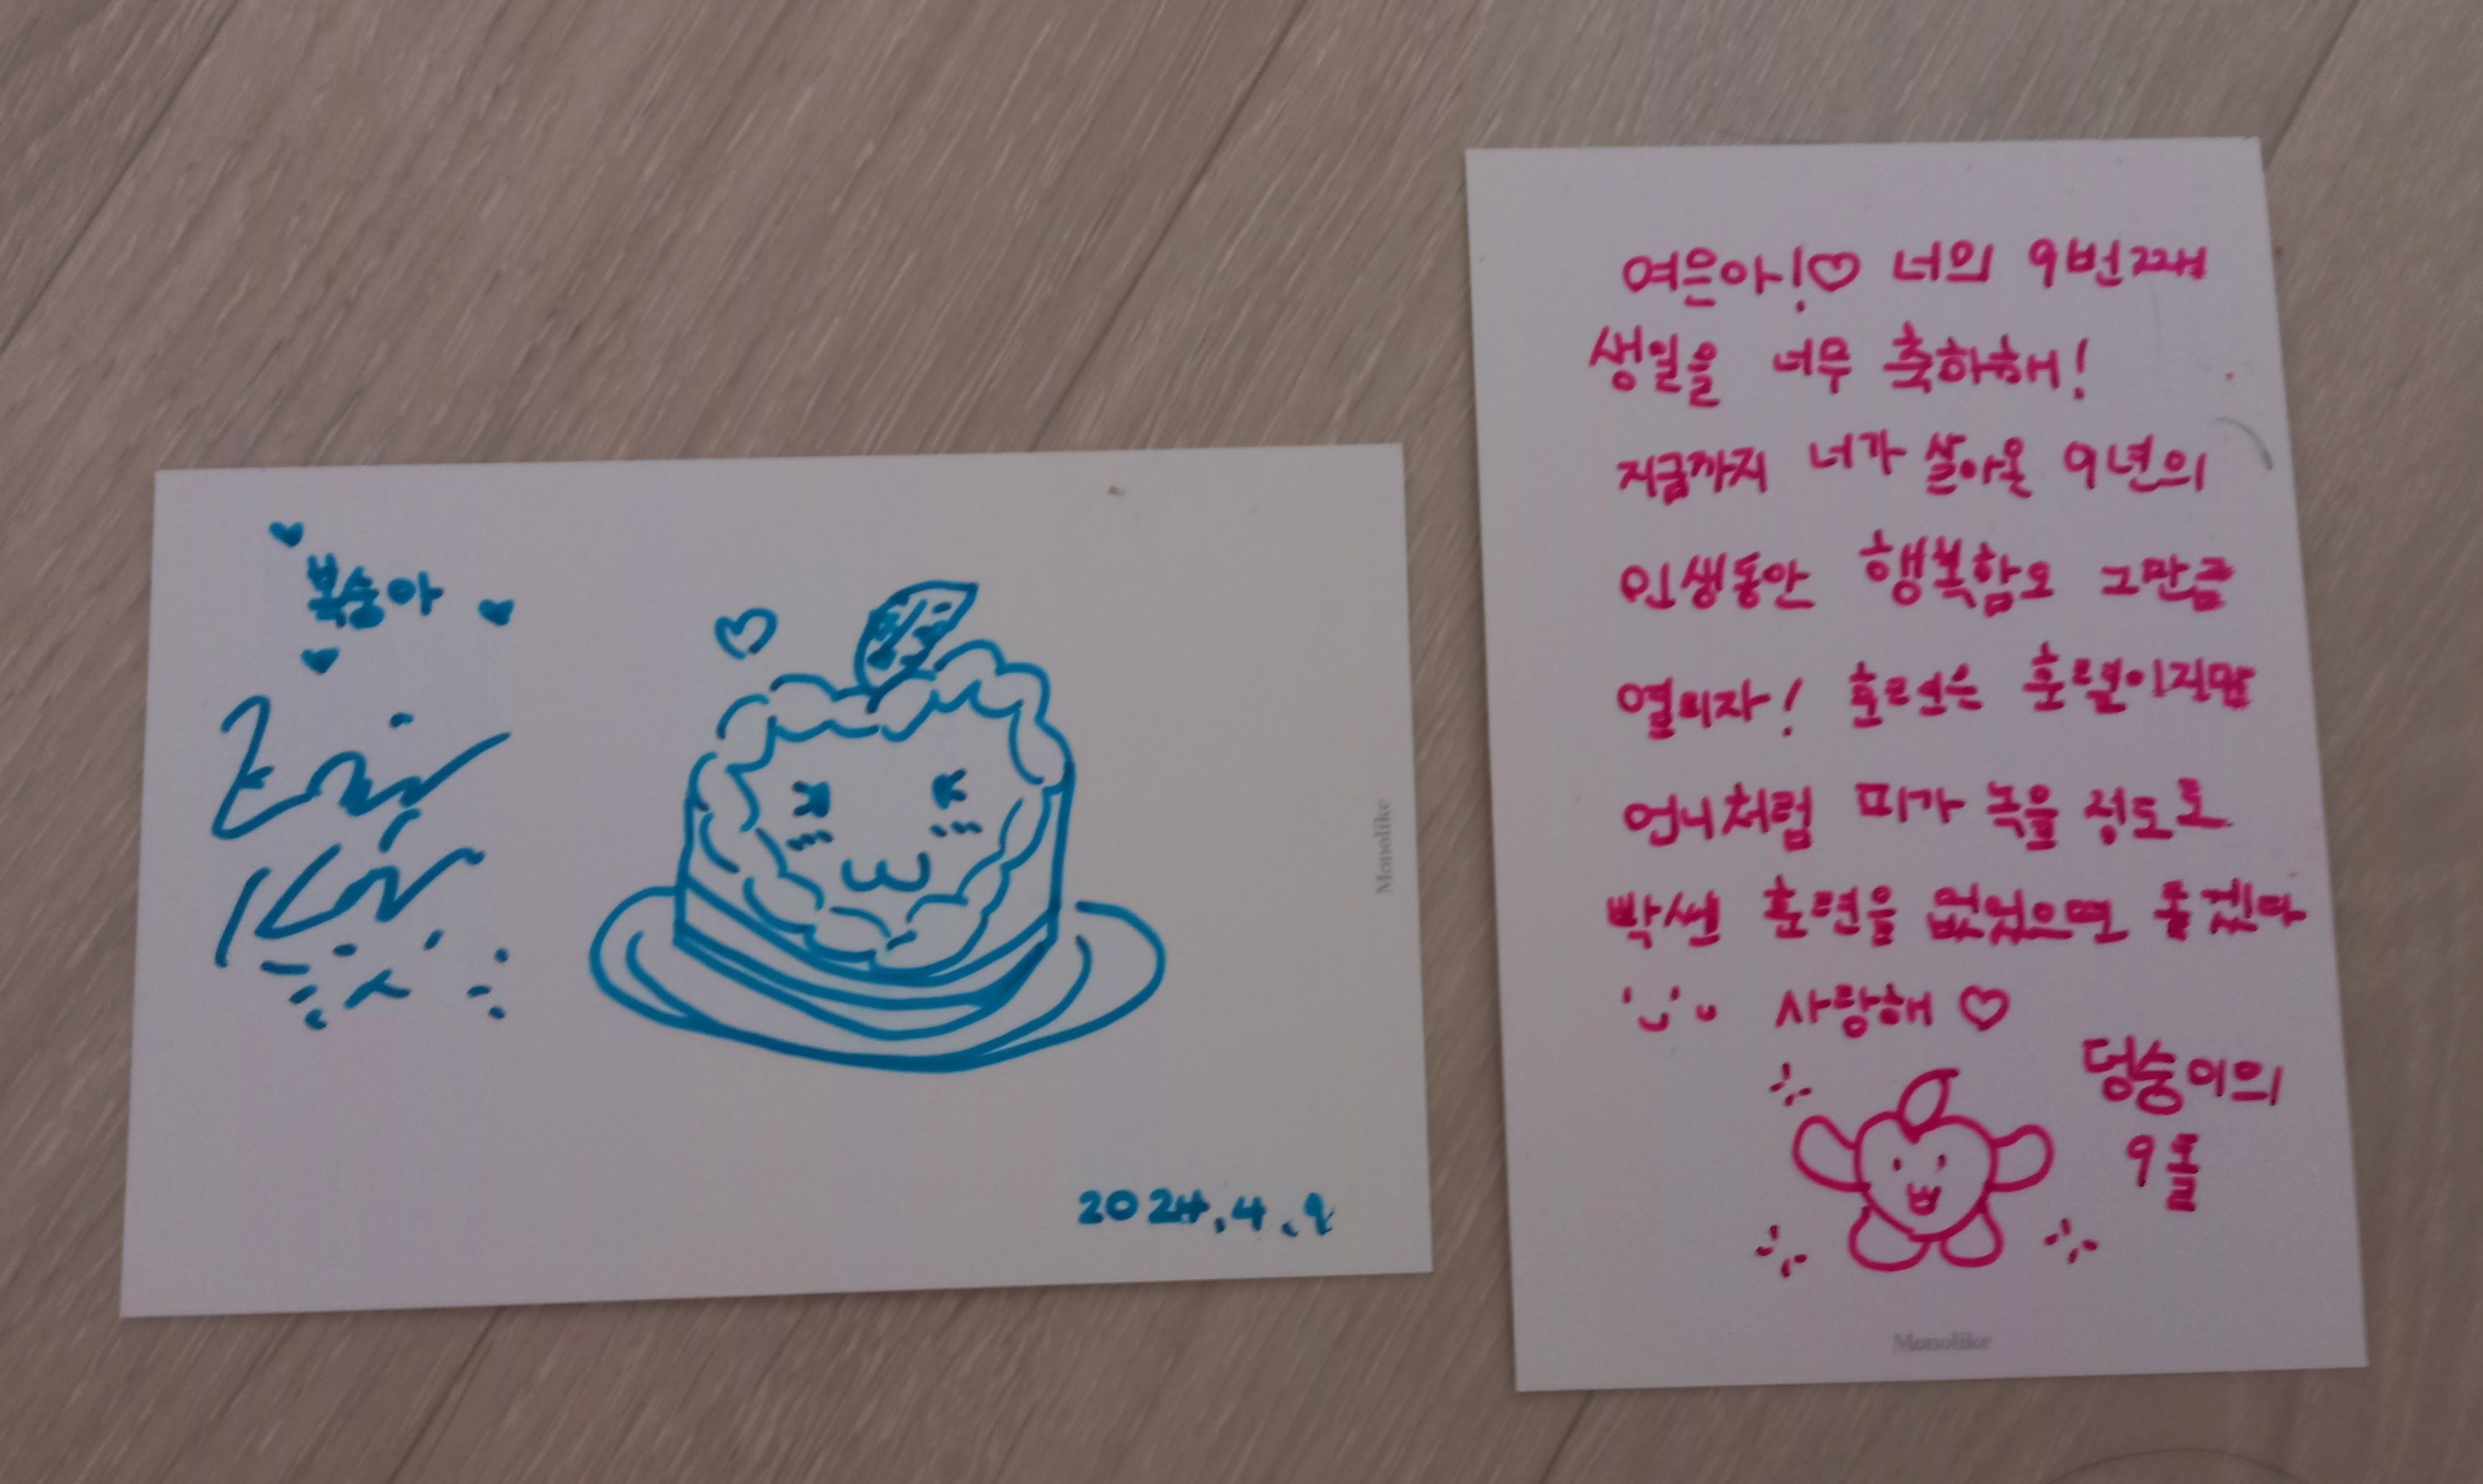 복숭아
2024.4.9
Monolike
여은아!♡ 너의 9번째
생일을 너무 축하해!
지금까지 너가 살아온 9년의
인생동안 행복함도 그만큼
열리자! 훈련은 훈련이지만
언니처럼 피가 녹을 정도로
빡쎈 훈련을 없었으면 좋겠다
사랑해♡
덩숭이의
9돌
Monolike